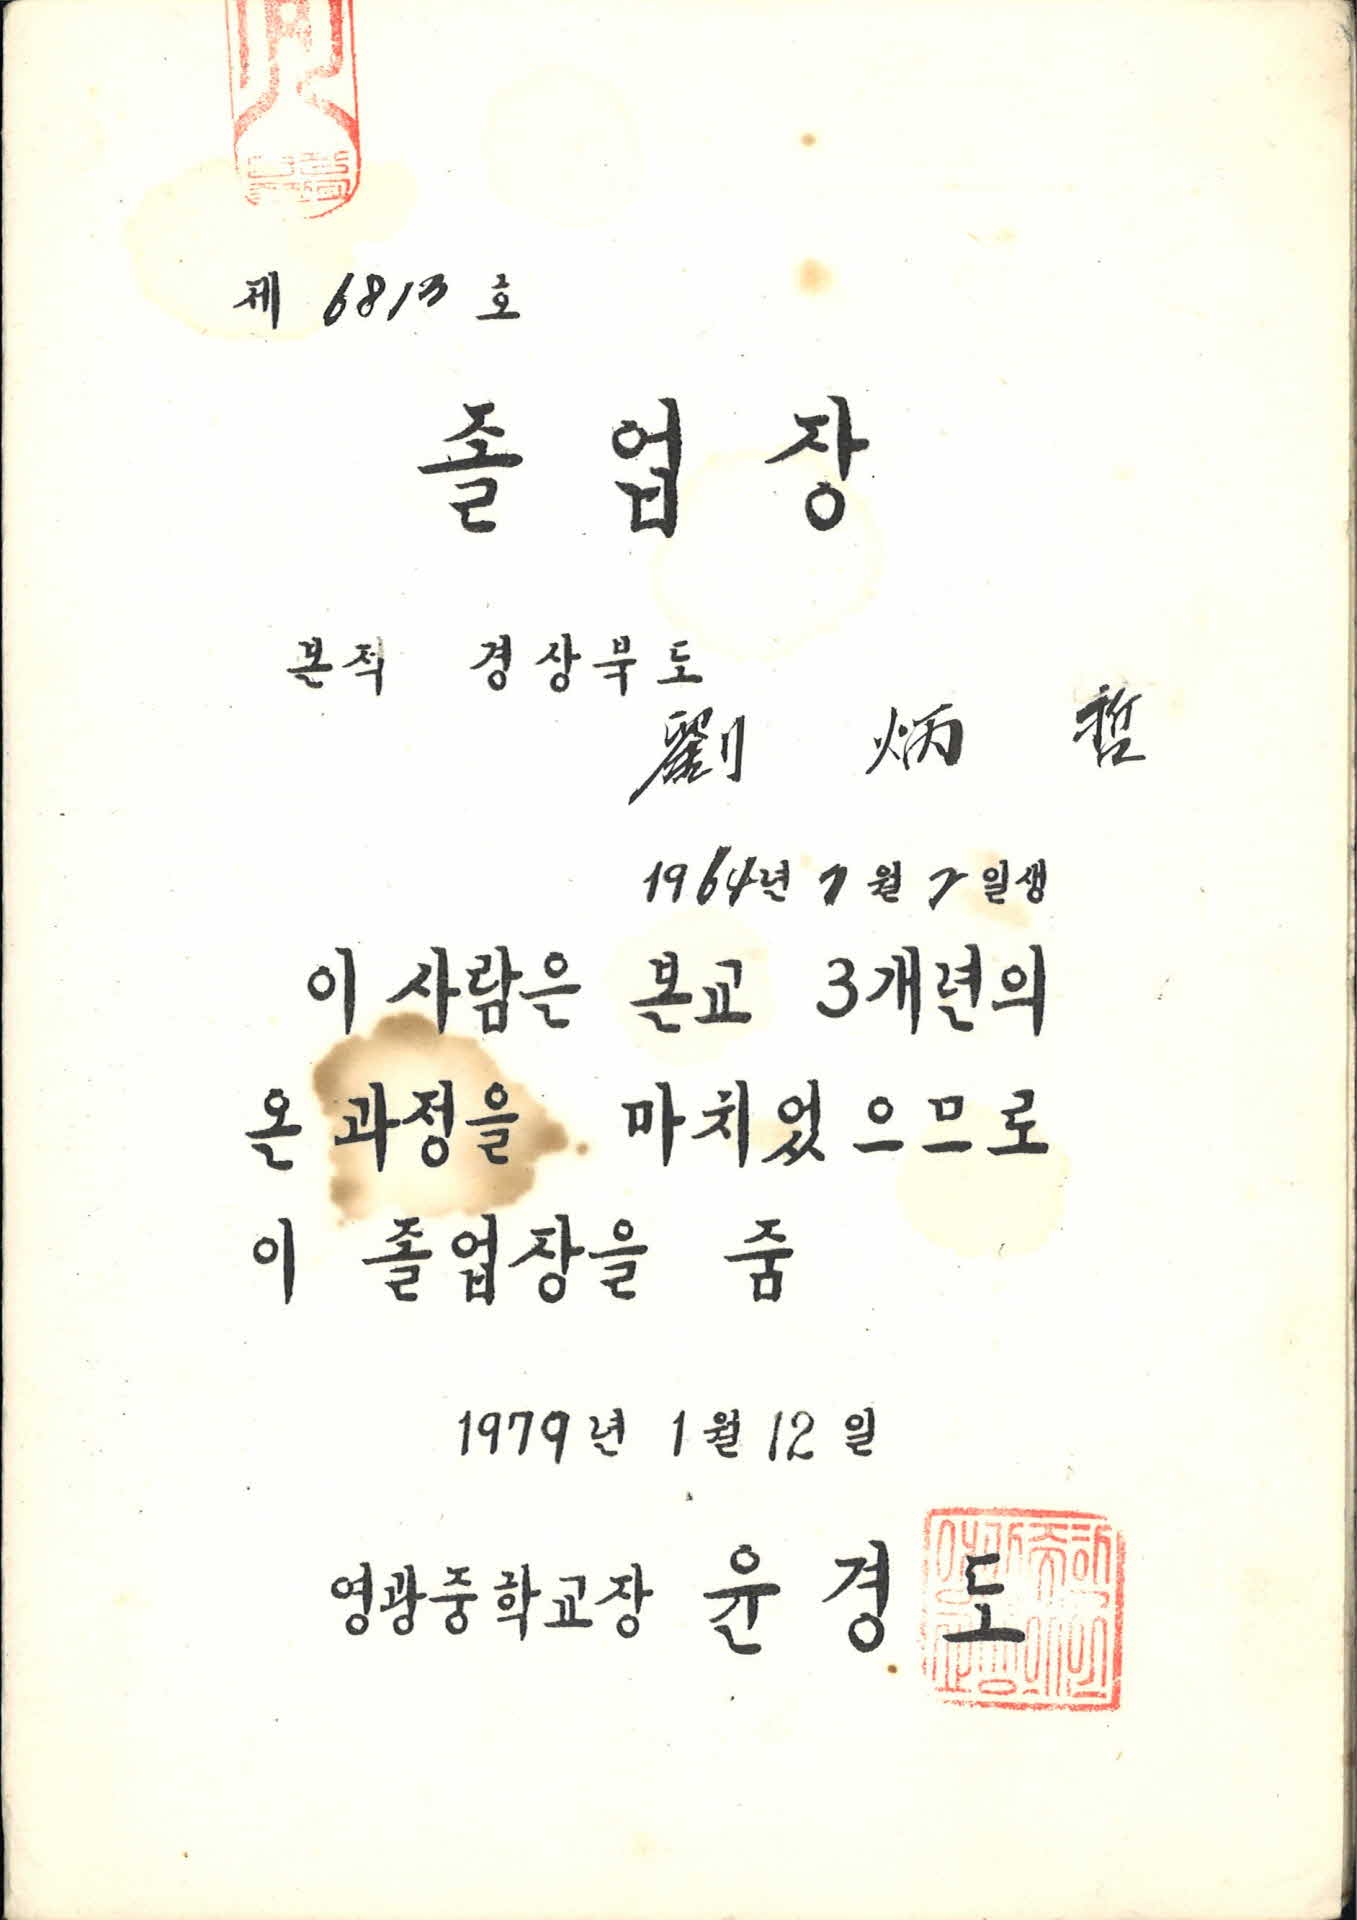 제 6813 호
졸업장
본적 경상북도
劉 炳 哲
1964년 7월 7일생
이 사람은 본교 3개년의
온 과정을 마치었으므로
이 졸업장을 줌
1979년 1월 12일
영광중학교장 윤경도